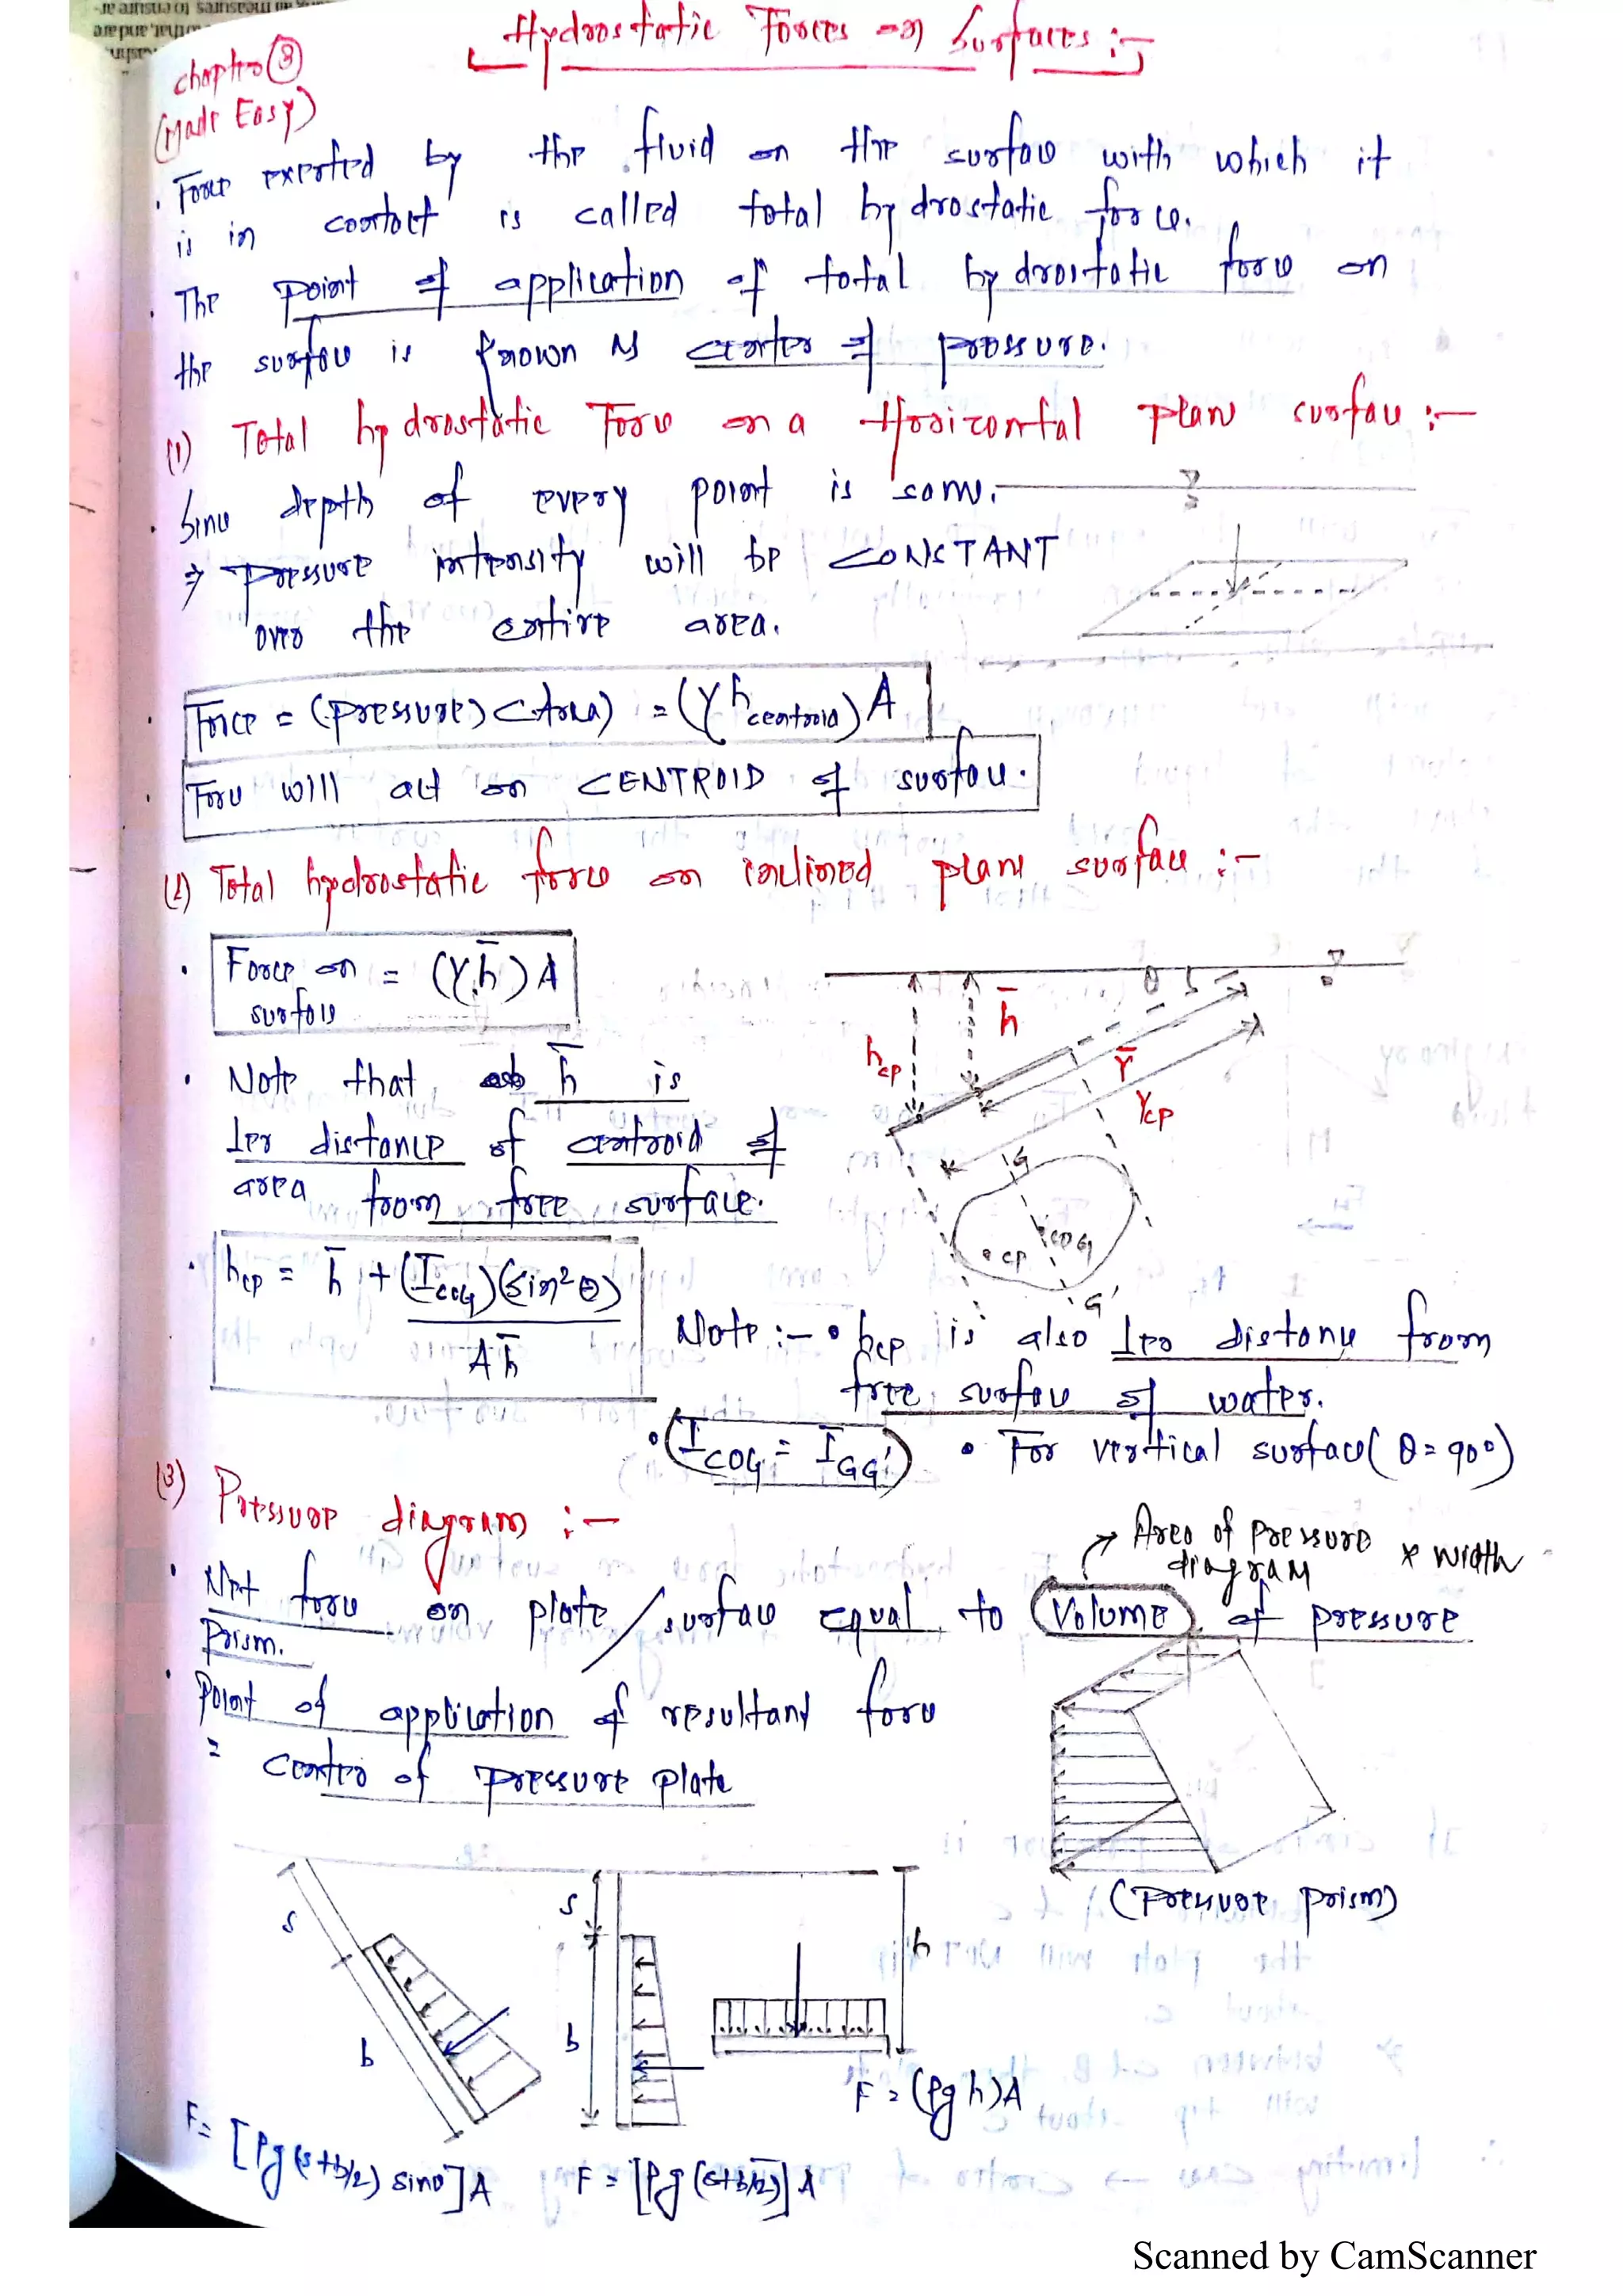 Hydrostatic Forces on Surfaces :-
chapter (3)
(Made Easy)
. Force exerted by the fluid on the surface with which it
is in contact is called total hydrostatic force.
. The point of application of total hydrostatic force on
the surface is known as center of pressure.
(1) Total hydrostatic Force on a Horizontal plane surface :-
. Since depth of every point is same.
⇒ Pressure intensity will be CONSTANT
over the entire area.
. Force = (pressure) (Area) = (γ h centroid) A
. Force will act on CENTROID of surface.
(2) Total hydrostatic force on inclined plane surface :-
. Force on surface = (γ.h̄) A
. Note that h̄ is
⊥er distance of centroid of
area from free surface.
. hcp = h̄ + (I_COG)(sin²θ) / A h̄
θ
h̄
hcp
Ȳ
Ycp
G
COG
CP
G'
Note :- • hcp is also ⊥er distance from
free surface of water.
• (I_COG = I_GG') • For vertical surface (θ = 90°)
(3) Pressure diagram :-
→ Area of pressure diagram × width
. Net force on plate/surface equal to Volume of pressure
Prism.
. Point of application of resultant force
= Center of pressure plate
(Pressure prism)
s
b
s
b
h
F = (ρgh)A
F = [ρg(s+b/2) sinθ]A
F = [ρg(s+b/2)]A
Scanned by CamScanner